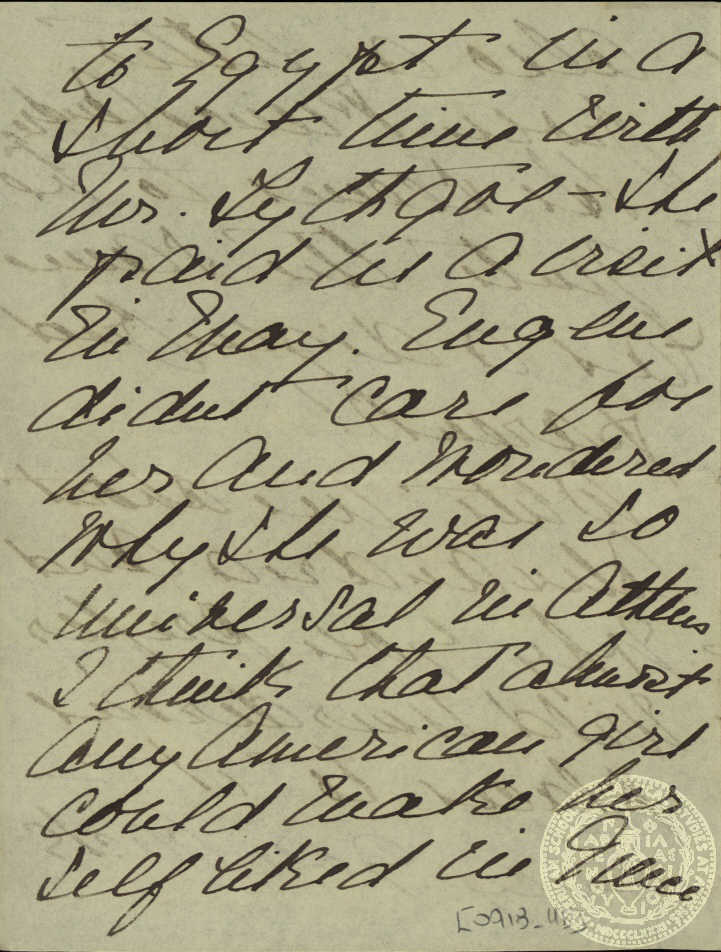 to Egypt in a
short time with
Mr. Lythgoe - She
paid us a visit
in May. Eugene
didnt care for
her and wondered
why she was so
universal in Athens
I think that almost
any American girl
could make her
self liked in Greece